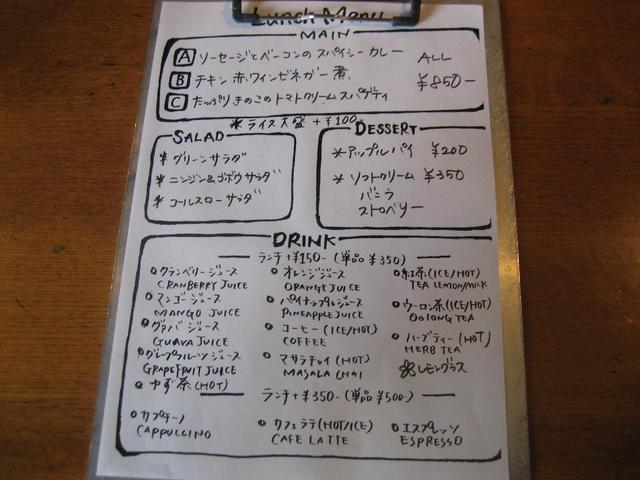 Lunch Menu
MAIN
A ソーセージとベーコンのスパイシーカレー
B チキン赤ワインビネガー煮
C たっぷりきのこのトマトクリームスパゲティ
ALL
¥850-
*ライス大盛 +¥100
SALAD
* グリーンサラダ
* ニンジン&ゴボウサラダ
* コールスローサラダ
DESSERT
* アップルパイ ¥200
* ソフトクリーム ¥350
バニラ
ストロベリー
DRINK
ランチ+¥150- (単品 ¥350)
クランベリージュース
CRANBERRY JUICE
マンゴージュース
MANGO JUICE
グァバジュース
GUAVA JUICE
グレープフルーツジュース
GRAPEFRUIT JUICE
ゆず茶(HOT)
オレンジジュース
ORANGE JUICE
パイナップルジュース
PINEAPPLE JUICE
コーヒー(ICE/HOT)
COFFEE
マサラチャイ(HOT)
MASALA CHAI
紅茶(ICE/HOT)
TEA LEMON/MILK
ウーロン茶(ICE/HOT)
OOLONG TEA
ハーブティー(HOT)
HERB TEA
レモングラス
ランチ+¥350- (単品 ¥500-)
カプチーノ
CAPPUCCINO
カフェラテ(HOT/ICE)
CAFE LATTE
エスプレッソ
ESPRESSO